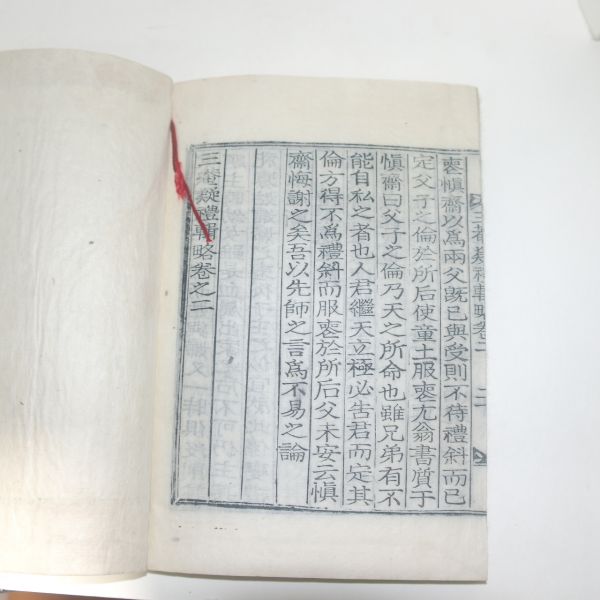 三菴疑禮輯略卷二
三
喪愼齋以爲兩父旣已與受則不待禮斜而已
定父子之倫於所后使童土服喪尤翁書質于
愼齋曰父子之倫乃天之所命也雖兄弟有不
能自私之者也人君繼天立極必告君而定其
倫方得不爲禮斜而服喪於所后父未安云愼
齋悔謝之矣吾以先師之言爲不易之論
三菴疑禮輯略卷之二